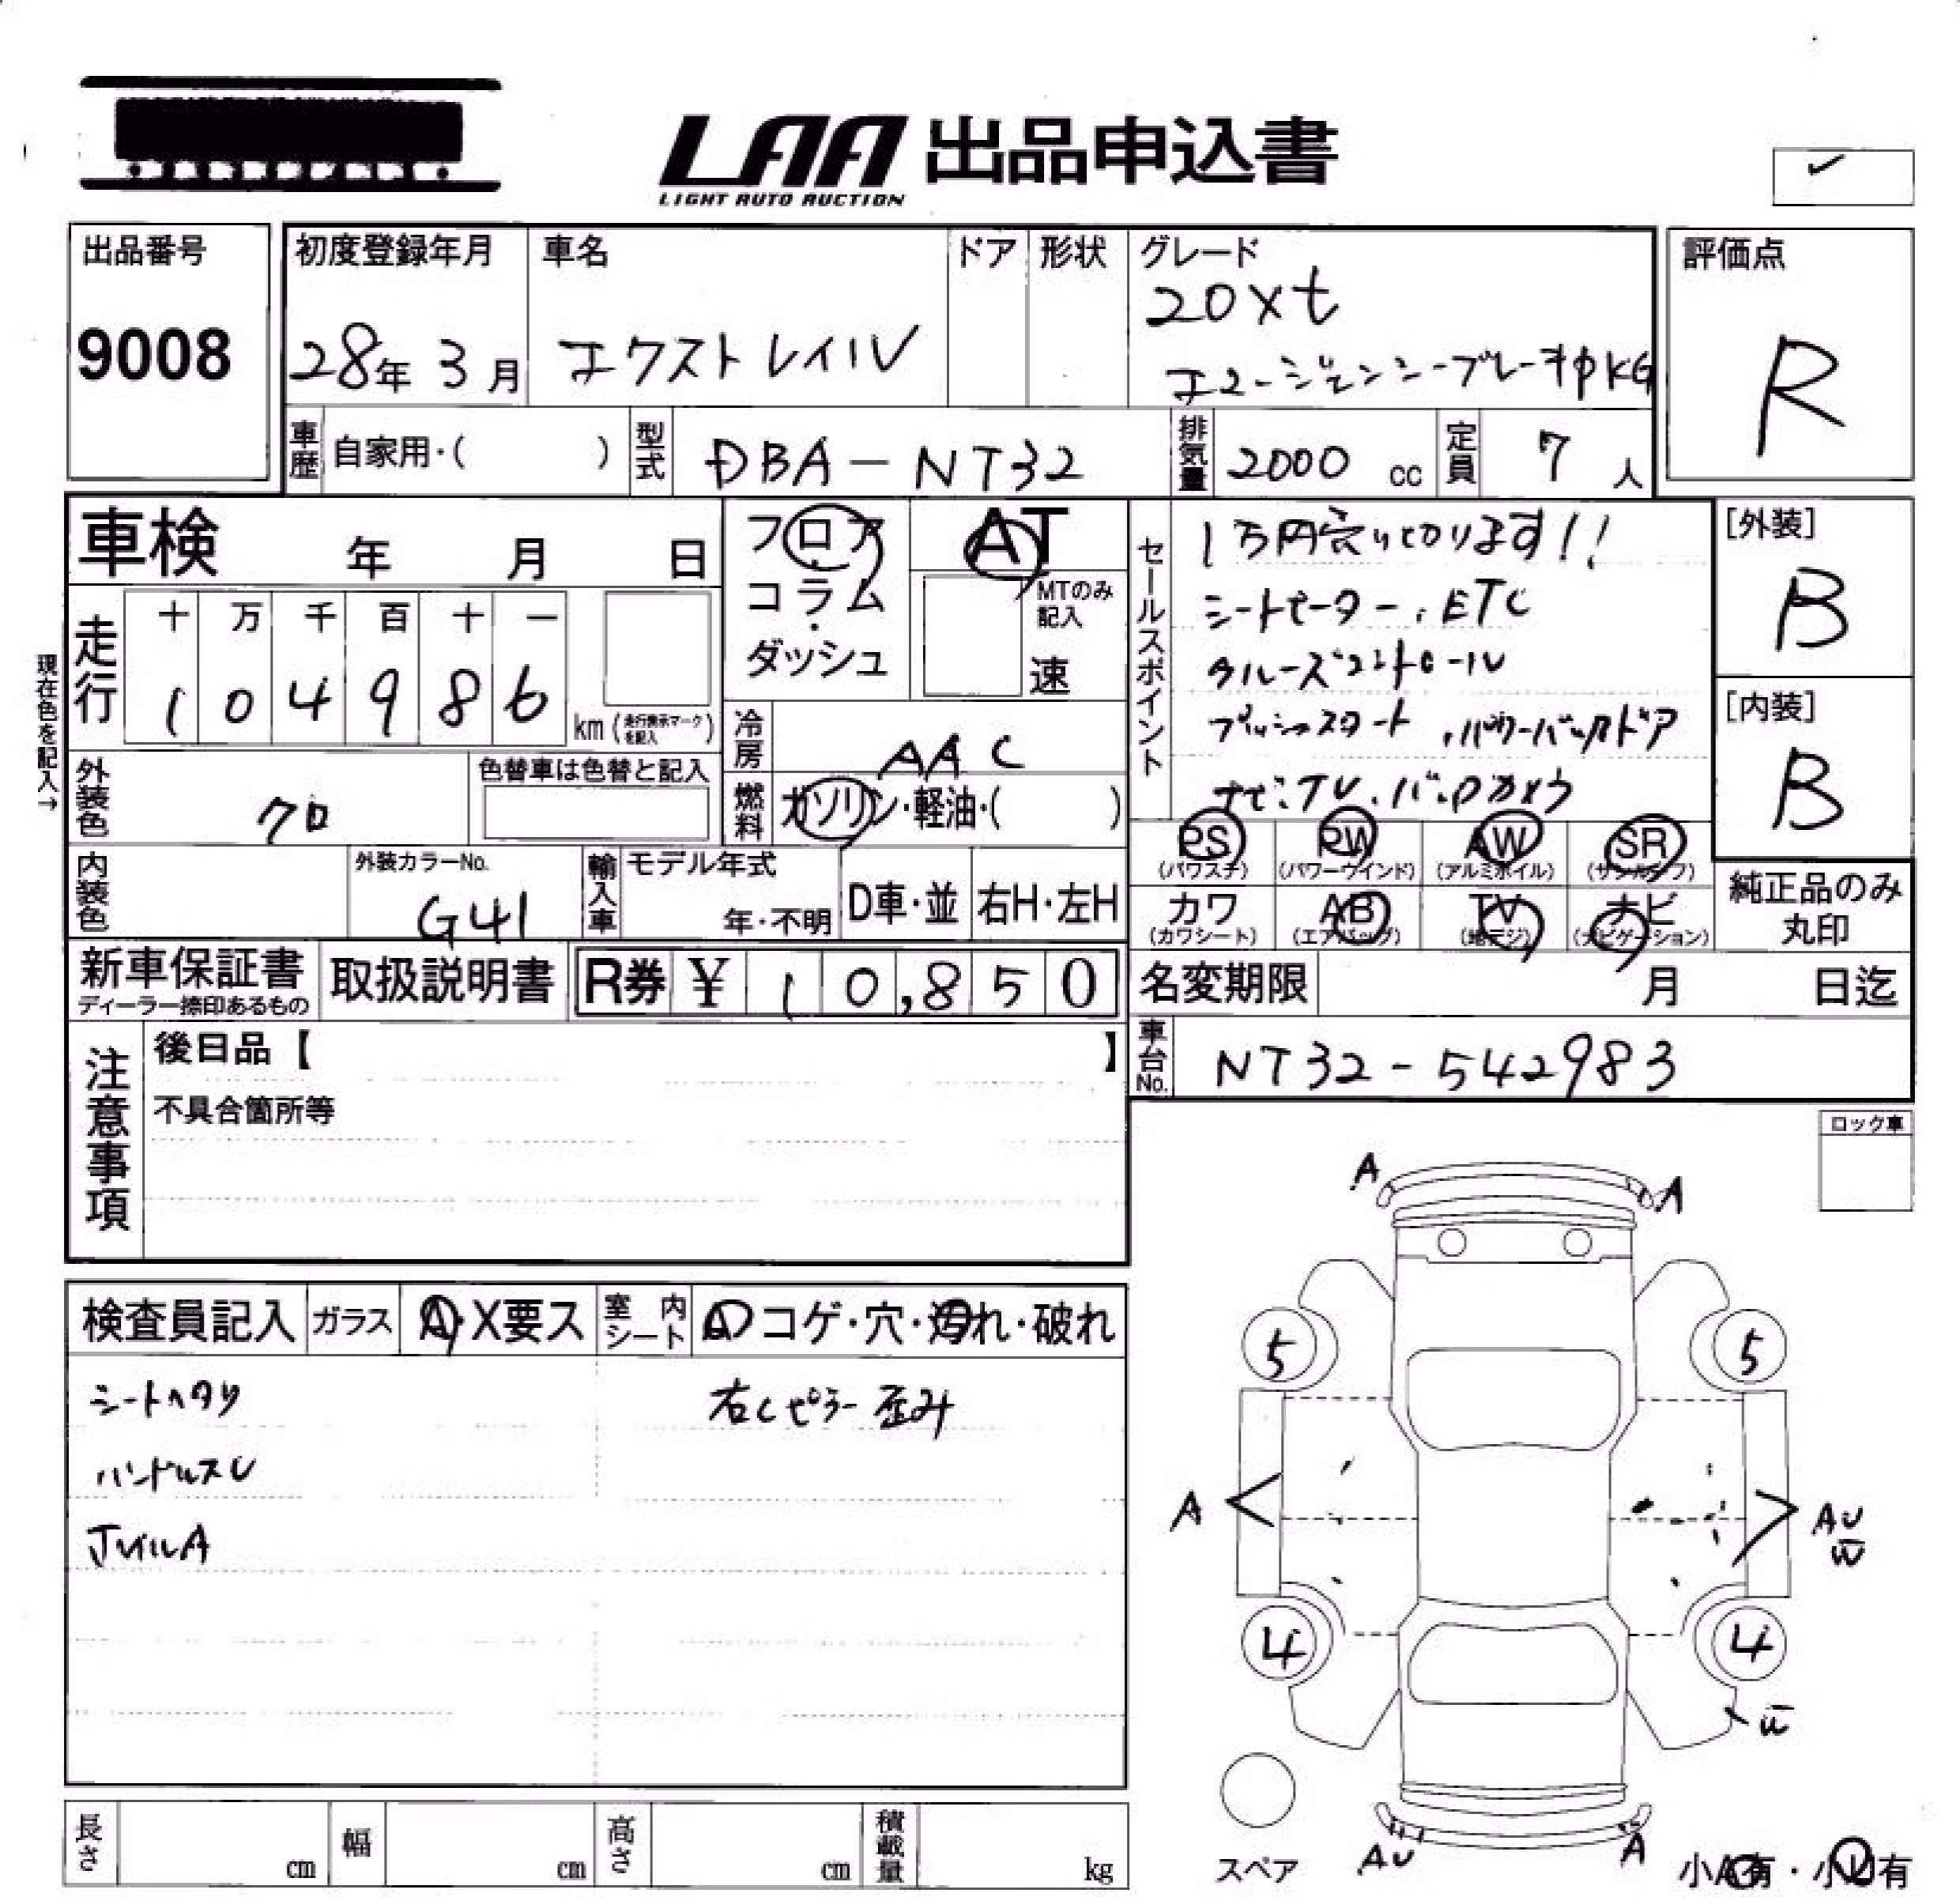 LAA 出品申込書
LIGHT AUTO AUCTION
出品番号
9008
初度登録年月
28年 3月
車名
エクストレイル
ドア
形状
グレード
20Xt
エマージェンシーブレーキPKG
評価点
R
車歴
自家用・( )
型式
DBA-NT32
排気量
2000 cc
定員
7 人
車検 年 月 日
フロア
コラム
・
ダッシュ
AT
MTのみ
記入
速
セールスポイント
1万円売り切ります!!
シートヒーター、ETC
クルーズコントロール
プッシュスタート、パワーバックドア
ナビ、TV、バックカメラ
[外装]
B
[内装]
B
現在色を記入→
走行
十 万 千 百 十 一
1 0 4 9 8 6
km(走行表示マークを記入)
冷房
AAC
燃料
ガソリン・軽油・( )
外装色
クロ
色替車は色替と記入
内装色
外装カラーNo.
G41
輸入車
モデル年式
年・不明
D車・並
右H・左H
PS
(パワステ)
PW
(パワーウインド)
AW
(アルミホイル)
SR
(サンルーフ)
カワ
(カワシート)
AB
(エアバッグ)
TV
(地デジ)
ナビ
(ナビゲーション)
純正品のみ
丸印
新車保証書
ディーラー捺印あるもの
取扱説明書
R券 ¥ 10,850
名変期限 月 日迄
車台No.
NT32-542983
注意事項
後日品【 】
不具合箇所等
ロック車
検査員記入
ガラス
A・X要ス
室内
シート
コゲ・穴・汚れ・破れ
シートヘタリ
右Cピラー歪み
ハンドルスレ
ホイルA
A
A
5
5
A
AU
W
4
4
W
スペア
AU
A
小A有・小U有
長さ cm
幅 cm
高さ cm
積載量 kg